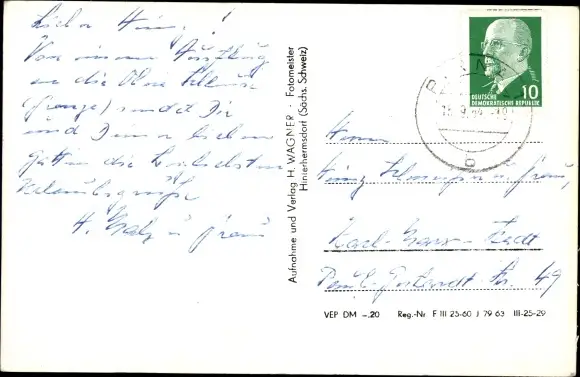 Lieber Heinz!
Von unserem Ausflug
an die Obere Schleuse
(Grenze) sendet Dir
und Deiner lieben
Gattin die herzlichsten
Urlaubsgrüße
H. u. Frau
Aufnahme und Verlag H. WAGNER · Fotomeister
Hinterhermsdorf (Sächs. Schweiz)
10
DEUTSCHE
DEMOKRATISCHE REPUBLIK
Herrn
Heinz u. Frau,
Karl-Marx-Stadt
Str. 49
VEP DM –.20 Reg.-Nr F III 25-60 J 79 63 III-25-29